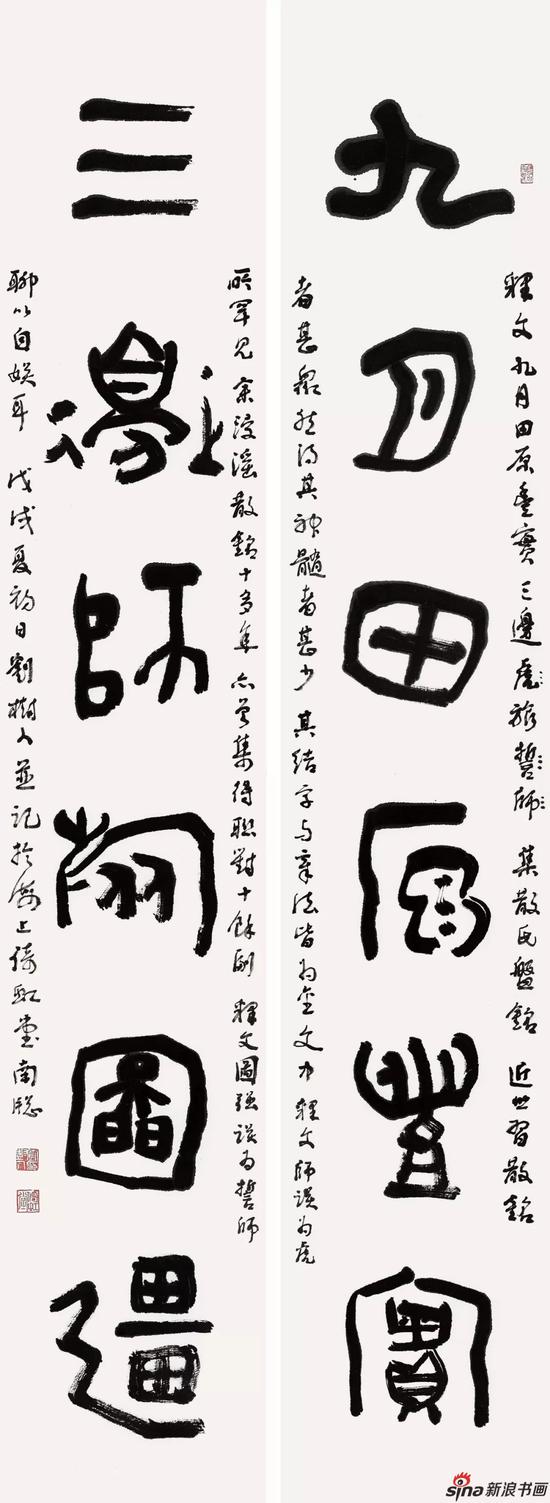 九月田原豐實
釋文九月田原豐實三邊虎旅誓師集散氏盤銘近世習散銘
者甚眾然得其神髓者甚少其結字與章法皆為金文中釋文師誤為虎
三邊師旅圖彊
所罕見余浸淫散銘十多年亦曾集得聯對十餘副釋文圖強誤為誓師
聊以自娛耳戊戌夏初日劉樹人並記於海上綺虹堂南牕
sina新浪书画